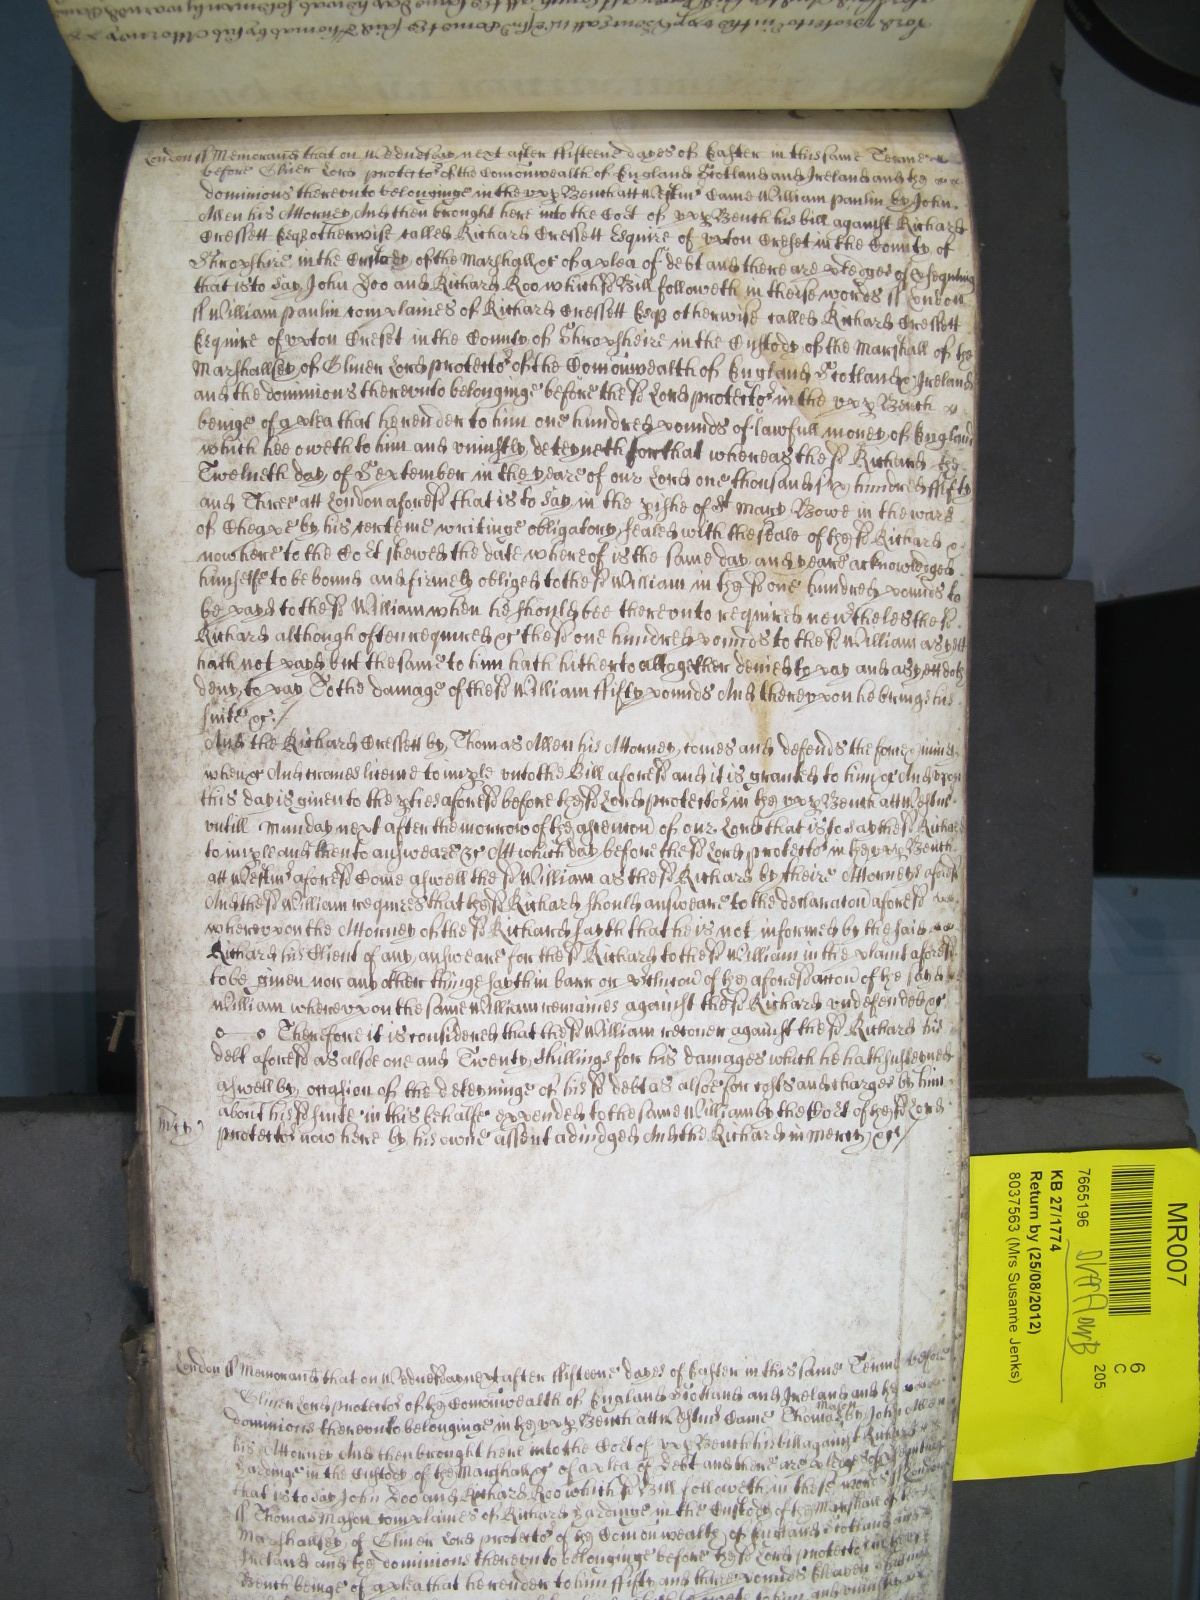 London ss Memorand that on Wednesday next after ffifteene dayes of Easter in this same Terme
before Oliver Lord protector of the Comonwealth of England Scotland and Ireland and the
dominions thereunto belonginge in the upp Bench att Westmr Came William Paulin by John
Allen his Attorney And then brought here into the Cort of upp Bench his bill against Richard
Cressett Esqr otherwise called Richard Cressett Esquire of Upton Creset in the County of
Shropshire in the Custody of the Marshall &c of a plea of debt and there are pledges of psequting
that is to say John Doo and Richard Roo which sd Bill followeth in theise words ss London
ss William Paulin complaines of Richard Cressett Esqr otherwise called Richard Cressett
Esquire of Upton Creset in the County of Shropsheire in the Custody of the Marshall of the
Marshallsey of Oliver Lord protector of the Comonwealth of England Scotland & Ireland
and the dominions thereunto belonginge before the sd Lord protector in the upp Bench
beinge of a plea that he render to him one hundred pounds of lawfull money of England
which hee oweth to him and uniustly deteyneth for that whereas the sd Richard the
Twelueth day of September in the yeare of our Lord one thousand six hundred ffifty
and Three att London aforesd that is to say in the pishe of St Mary Bowe in the ward
of Cheape by his certeine writinge obligatory sealed with the seale of the sd Richard
now here to the Cort shewed the date whereof is the same day and yeare acknowledged
himselfe to be bound and firmely obliged to the sd William in the sd one hundred pounds to
be payd to the sd William when he should bee thereonto required neverthelesthe sd
Richard although often required &c the sd one hundred pounds to the sd William as yett
hath not payd but the same to him hath hitherto altogether denied to pay and as yett doth
deny to pay To the damage of the sd William ffifty pounds And thereupon he brings his
suite &c
And the Richard Cressett by Thomas Allen his Attorney comes and defends the force & iniury
when &c And craues licence to imple unto the Bill aforesd and it is granted to him &c And upon
this day is given to the pties aforesd before the sd Lord protector in the upp Bench att Westmr
untill Munday next after the morrow of the ascention of our Lord that is to say the sd Richard
to imple and then to answeare &c Att which day before the sd Lord protector in the upp Bench
att Westmr aforesd Come aswell the sd William as the sd Richard by theire Attorneys aforesd
And the sd William requires that the sd Richard should answeare to the declaration aforesd
whereupon the Attorney of the sd Richard sayth that he is not informed by the said
Richard his Client of any answeare for the sd Richard to the sd William in the plaint aforesd
to be given nor any other thinge sayth in barr or pclusion of the aforesd accon of the sayd
William whereupon the same William remaines against the sd Richard undefended &c
Therefore it is considered that the sd William recover against the sd Richard his
debt aforesd as alsoe one and Twenty shillings for his damages which he hath susteyned
aswell by occasion of the deteyninge of his sd debt as alsoe for costs and charges by him
about his sd suite in this behalfe expended to the same William by the Cort of the sd Lord
protector now here by his owne assent adiudged And the Richard in mercy &c
mcy
London ss Memorand that on Wednesday next after ffifteene dayes of Easter in this same Terme before
Oliver Lord protector of the Comonwealth of England Scotland and Ireland and the
dominions thereunto belonginge in the upp Bench att Westmr Came Thomas Mason by John Allen
his Attorney And then brought here into the Cort of upp Bench his bill against Richard
Hardinge in the Custody of the Marshall &c of a plea of debt and there are pledges of psequting
that is to say John Doo and Richard Roo which sd Bill followeth in these words ss London
ss Thomas Mason complaines of Richard Hardinge in the Custody of the Marshall of the
Marshallsey of Oliver Lord protector of the Comonwealth of England Scotland and
Ireland and the dominions thereunto belonginge before the sd Lord protector in the upp
Bench beinge of a plea that he render to him ffifty and three pounds Eleaven
MR007
6
C
205
7665196
KB 27/1774
Return by (25/08/2012)
8037563 (Mrs Susanne Jenks)